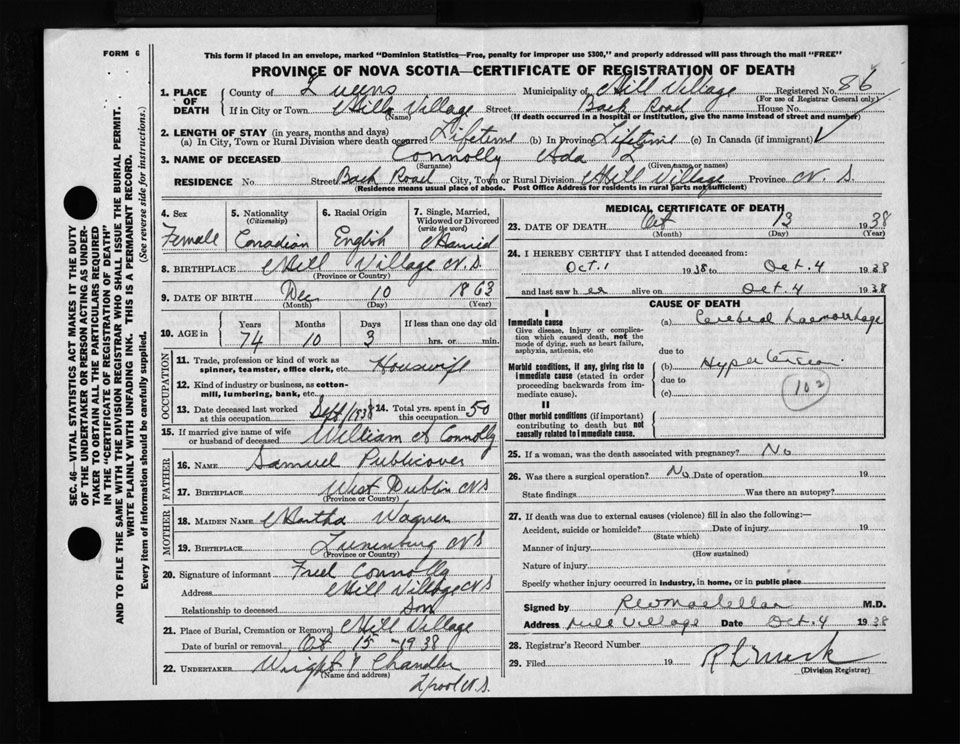 FORM 6
This form if placed in an envelope, marked "Dominion Statistics—Free, penalty for improper use $300," and properly addressed will pass through the mail "FREE"
PROVINCE OF NOVA SCOTIA—CERTIFICATE OF REGISTRATION OF DEATH
SEC. 46—VITAL STATISTICS ACT MAKES IT THE DUTY
OF THE UNDERTAKER OR PERSON ACTING AS UNDER-
TAKER TO OBTAIN ALL THE PARTICULARS REQUIRED
IN THE "CERTIFICATE OF REGISTRATION OF DEATH"
AND TO FILE THE SAME WITH THE DIVISION REGISTRAR WHO SHALL ISSUE THE BURIAL PERMIT.
WRITE PLAINLY WITH UNFADING INK. THIS IS A PERMANENT RECORD.
Every item of information should be carefully supplied. (See reverse side for instructions.)
1. PLACE OF DEATH
County of Queens Municipality of Mill Village Registered No. 86
(For use of Registrar General only)
If in City or Town Mill Village Street Back Road House No.
(Name) (If death occurred in a hospital or institution, give the name instead of street and number)
2. LENGTH OF STAY (in years, months and days)
(a) In City, Town or Rural Division where death occurred Lifetime (b) In Province Lifetime (c) In Canada (if immigrant)
3. NAME OF DECEASED Connolly Ada L
(Surname) (Given name or names)
RESIDENCE No. Street Back Road City, Town or Rural Division Mill Village Province N. S.
(Residence means usual place of abode. Post Office Address for residents in rural parts not sufficient)
4. Sex Female
5. Nationality (Citizenship) Canadian
6. Racial Origin English
7. Single, Married, Widowed or Divorced (write the word) Married
8. BIRTHPLACE Mill Village N.S
(Province or Country)
9. DATE OF BIRTH Dec 10 1863
(Month) (Day) (Year)
10. AGE in Years Months Days If less than one day old
74 10 3 hrs. or min.
OCCUPATION
11. Trade, profession or kind of work as spinner, teamster, office clerk, etc. Housewife
12. Kind of industry or business, as cotton-mill, lumbering, bank, etc.
13. Date deceased last worked at this occupation Sept/1938 14. Total yrs. spent in this occupation 50
15. If married give name of wife or husband of deceased William A Connolly
FATHER
16. NAME Samuel Publicover
17. BIRTHPLACE West Dublin NS
(Province or Country)
MOTHER
18. MAIDEN NAME Martha Wagner
19. BIRTHPLACE Lunenburg NS
(Province or Country)
20. Signature of informant Fred Connolly
Address Mill Village N.S
Relationship to deceased Son
21. Place of Burial, Cremation or Removal Mill Village
Date of burial or removal Oct 15 - 1938
22. UNDERTAKER Wright & Chandler
(Name and address)
L'pool N.S.
MEDICAL CERTIFICATE OF DEATH
23. DATE OF DEATH Oct 13 1938
(Month) (Day) (Year)
24. I HEREBY CERTIFY that I attended deceased from:
Oct. 1 1938 to Oct. 4 1938
and last saw her alive on Oct. 4 1938
CAUSE OF DEATH
I
Immediate cause (a) Cerebral haemorrhage
Give disease, injury or complication which caused death, not the mode of dying, such as heart failure, asphyxia, asthenia, etc
due to
Morbid conditions, if any, giving rise to immediate cause (stated in order proceeding backwards from immediate cause).
(b) Hypertension.
due to
(c)
102
II
Other morbid conditions (if important) contributing to death but not causally related to immediate cause.
25. If a woman, was the death associated with pregnancy? No
26. Was there a surgical operation? No Date of operation 19
State findings Was there an autopsy?
27. If death was due to external causes (violence) fill in also the following:—
Accident, suicide or homicide? Date of injury 19
(State which)
Manner of injury
(How sustained)
Nature of injury
Specify whether injury occurred in industry, in home, or in public place
Signed by M.D.
Address Mill Village Date Oct. 4 1938
28. Registrar's Record Number
29. Filed 19
(Division Registrar)